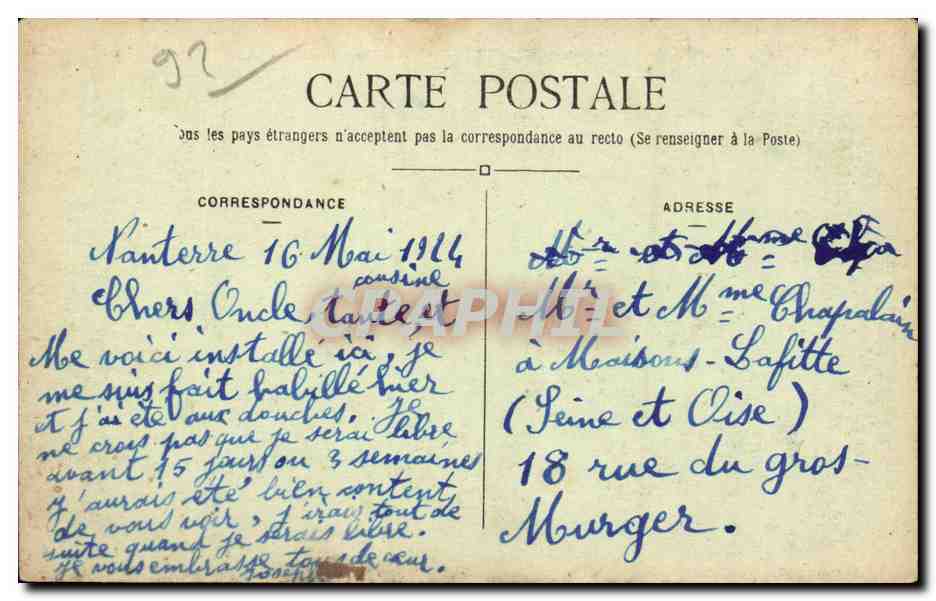 92
CARTE POSTALE
ous les pays étrangers n'acceptent pas la correspondance au recto (Se renseigner à la Poste)
CORRESPONDANCE
Nanterre 16 Mai 1924
cousine
Chers Oncle, tante, et
Me voici installé ici, je
me suis fait habillé hier
et j'ai été aux douches. Je
ne crois pas que je serai libre
avant 15 jours ou 3 semaines
j'aurais été bien content
de vous voir, j'irais tout de
suite quand je serais libre.
Je vous embrasse tous de cœur.
Joseph
ADRESSE
Mr et Mme
Mr et Mme Chapalain
à Maisons-Lafitte
(Seine et Oise)
18 rue du gros-
Murger.
CPAPHIL